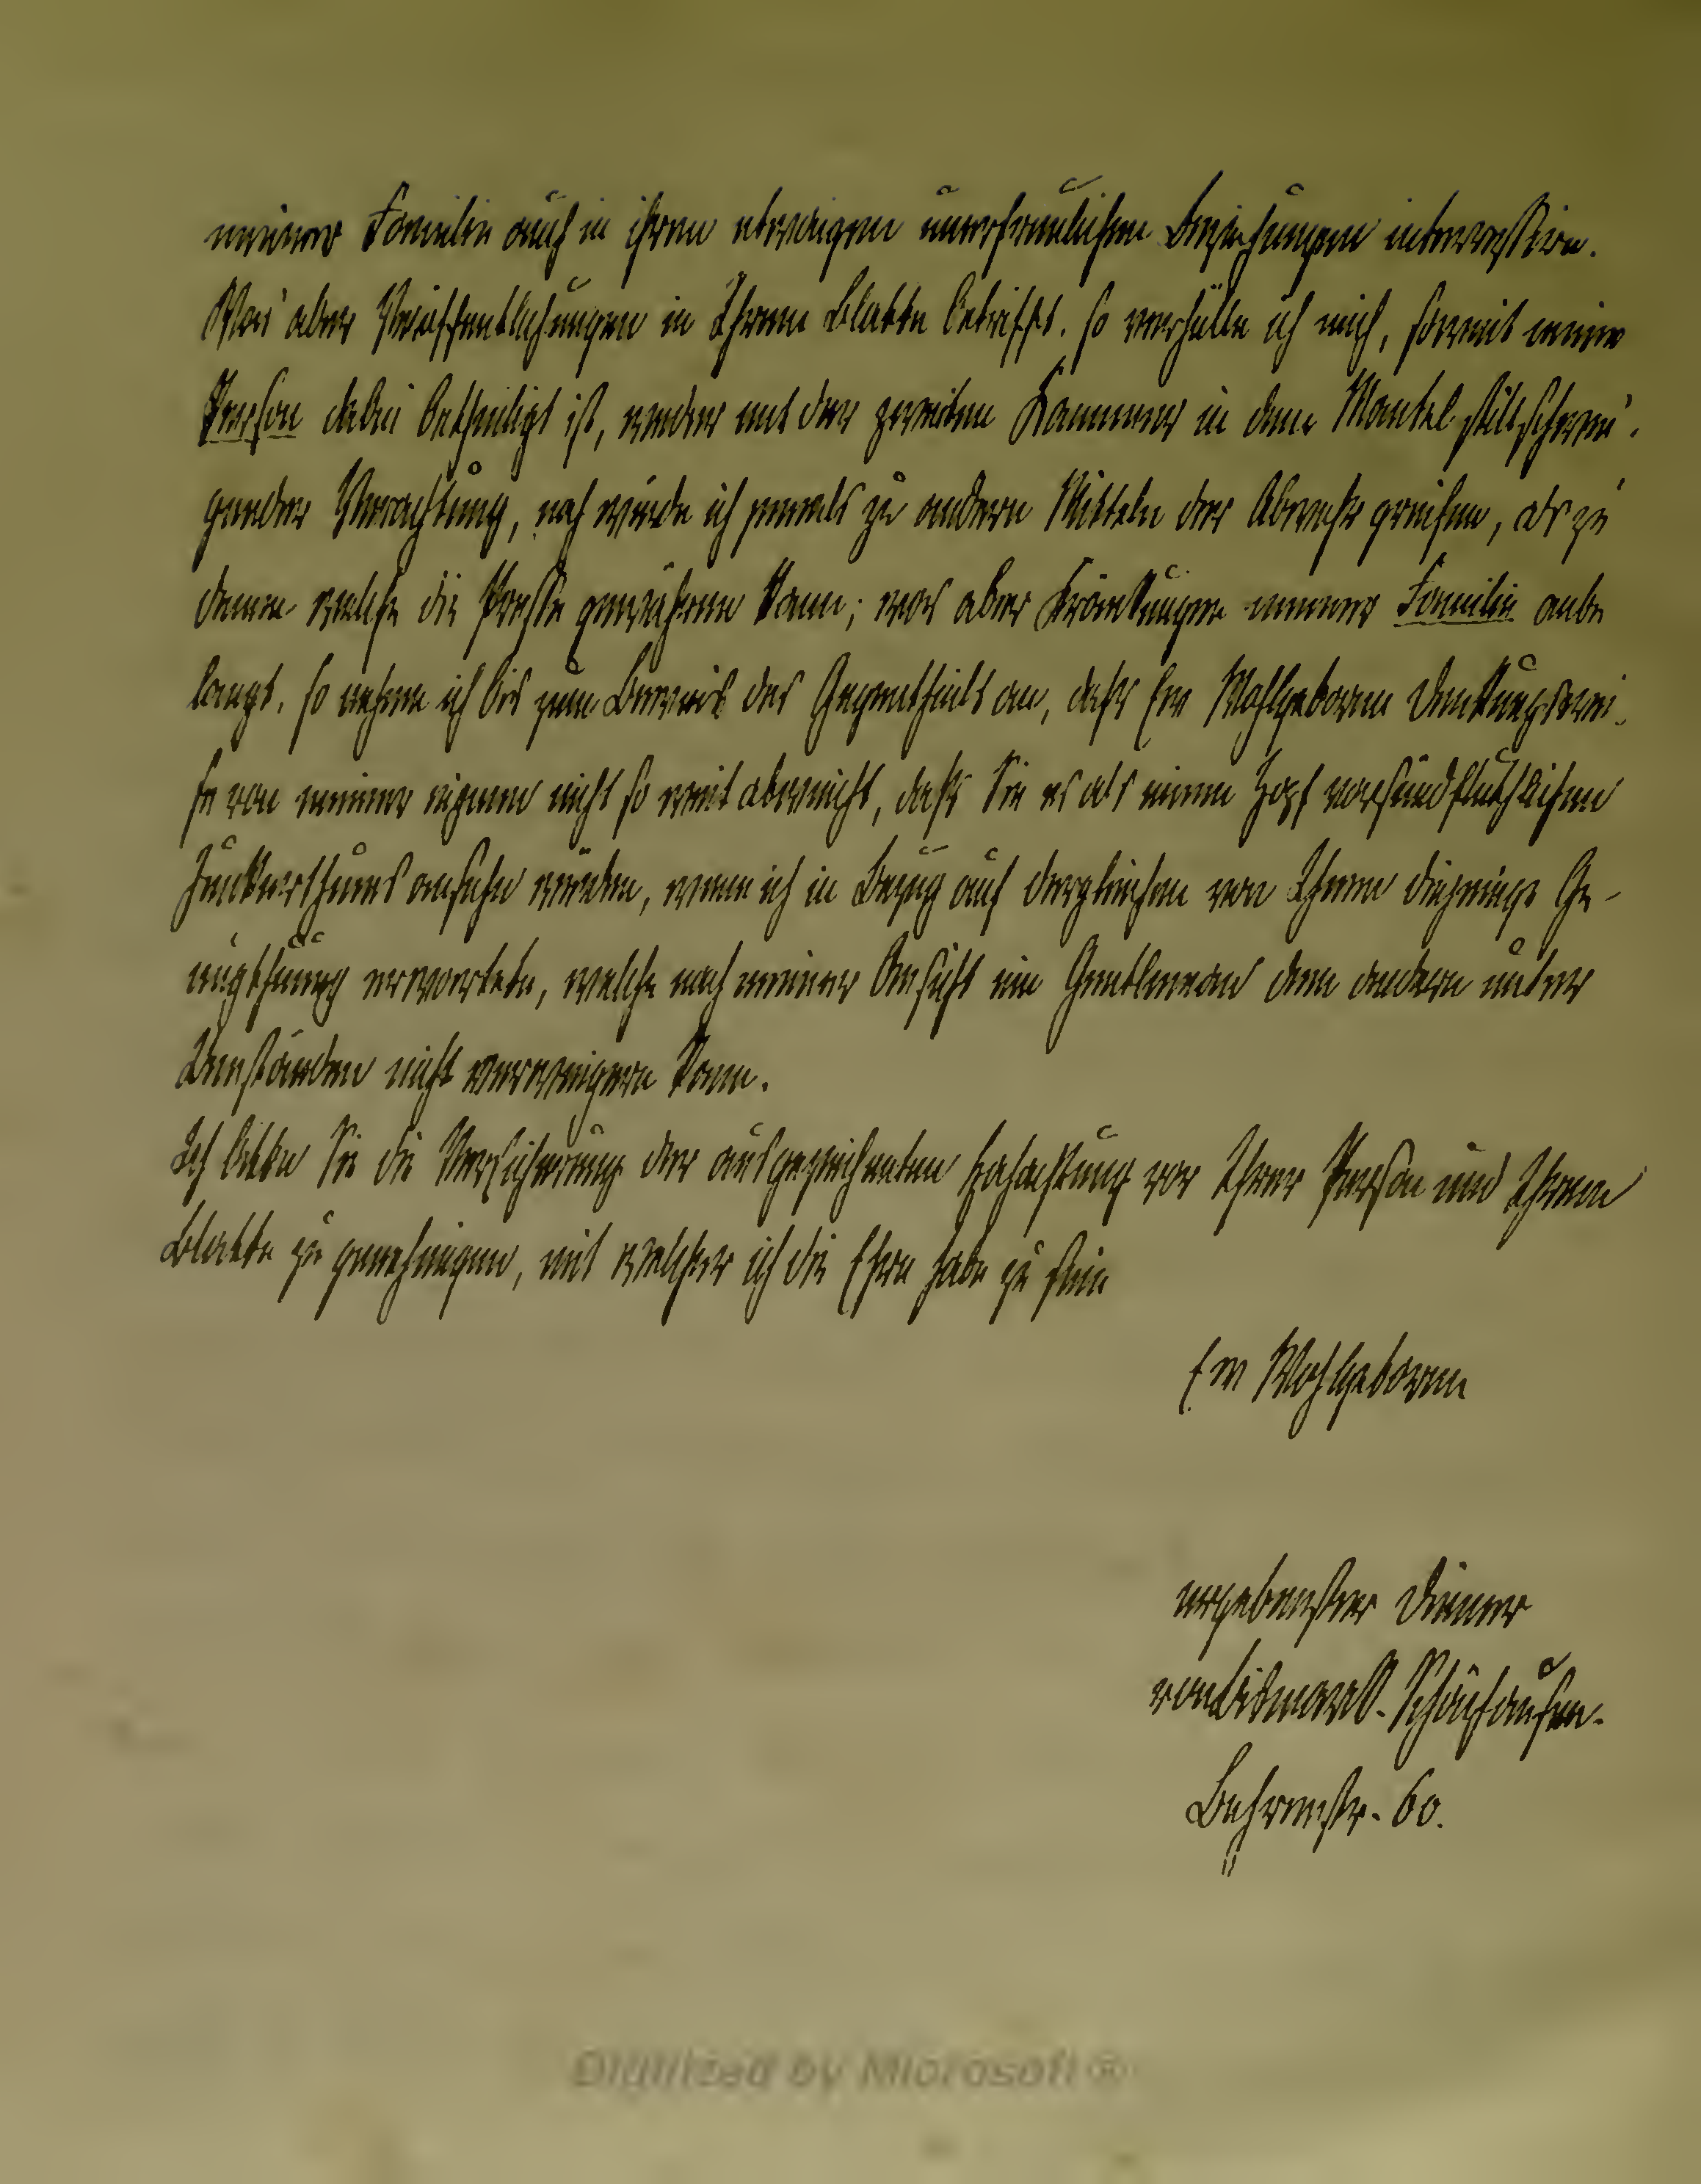 meiner Familie auch in ihren etwaigen unerfreulichen Beziehungen interessire.
Was aber Veröffentlichungen in Ihrem Blatte betrifft, so verhülle ich mich, soweit meine
Person dabei betheiligt ist, weder mit der zweiten Kammer in dem Mantel stillschwei-
gender Verachtung, noch würde ich jemals zu andern Mitteln der Abwehr greifen, als zu
denen welche die Presse gewähren kann; was aber Kränkungen meiner Familie anbe
langt, so nehme ich bis zum Beweis des Gegentheils an, daß Ew Wohlgeboren Denkungswei-
se von meiner eignen nicht so weit abweicht, daß Sie es als einen Zopf vorsündfluthlichen
Junkerthums ansehn würden, wenn ich in Bezug auf dergleichen von Ihnen diejenige Ge-
nugthuung erwartete, welche nach meiner Ansicht ein Gentleman dem andern unter
Umständen nicht verweigern kann.
Ich bitte Sie die Versicherung der ausgezeichneten Hochachtung vor Ihrer Person und Ihrem
Blatte zu genehmigen, mit welcher ich die Ehre habe zu sein
Ew Wohlgeboren
ergebenster Diener
von Bismarck-Schönhausen.
Behrenstr. 60.
Digitized by Microsoft ®